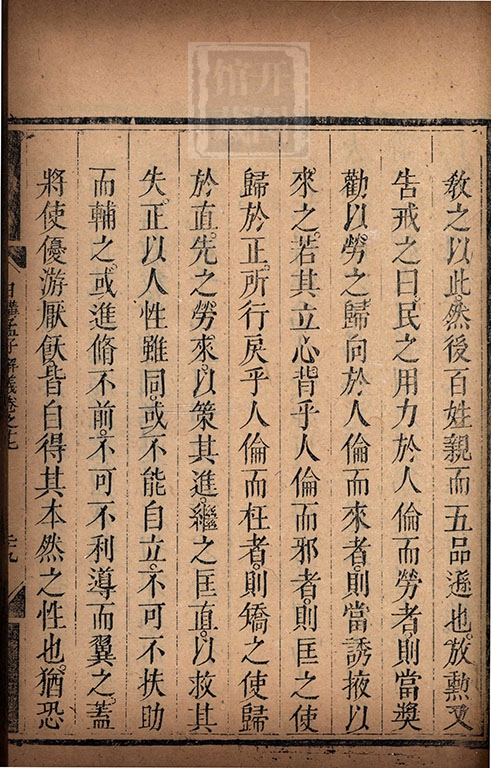 敎之以此。然後百姓親而五品遜也。放勳又
告戒之曰。民之用力於人倫而勞者。則當奬
勸以勞之。歸向於人倫而來者。則當誘掖以
來之。若其立心背乎人倫而邪者。則匡之使
歸於正。所行戾乎人倫而枉者。則矯之使歸
於直。先之勞來。以策其進。繼之匡直。以救其
失。正以人性雖同。或不能自立。不可不扶助
而輔之。或進脩不前。不可不利導而翼之。蓋
將使優游厭飫。皆自得其本然之性也。猶恐
日講孟子解義卷之